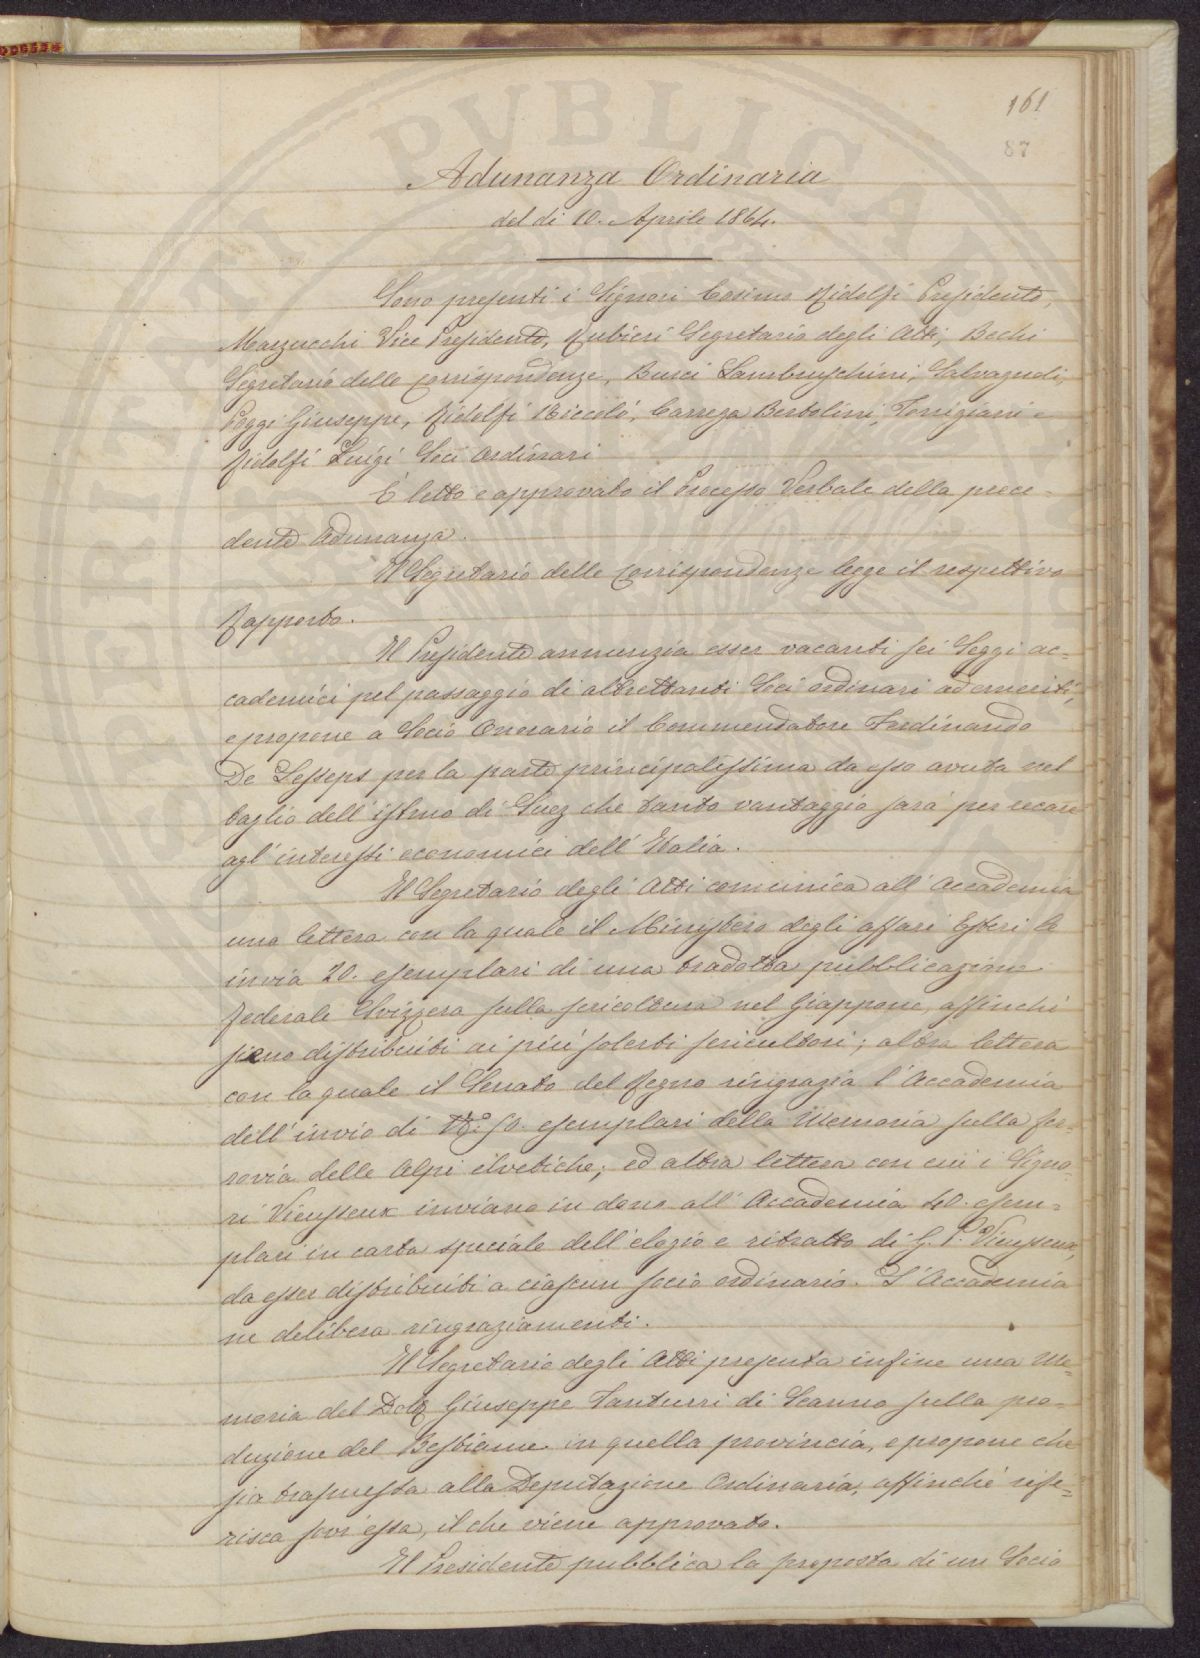 161
87
Adunanza Ordinaria
del dì 10. Aprile 1864.
Sono presenti i Signori Cosimo Ridolfi Presidente,
Marzucchi Vice Presidente, Rubieri Segretario degli Atti, Bechi
Segretario delle corrispondenze, Busci Lambruschini, Salvagnoli,
Poggi Giuseppe, Ridolfi Niccolò, Carrega Bertolini, Torrigiani e
Ridolfi Luigi Soci Ordinari
È letto e approvato il Processo Verbale della prece-
dente Adunanza.
Il Segretario delle corrispondenze legge il respettivo
Rapporto.
Il Presidente annunzia esser vacanti sei Seggi ac-
cademici pel passaggio di altrettanti Soci ordinari ad emeriti,
e propone a Socio Onorario il Commendatore Ferdinando
De Lesseps per la parte principalissima da esso avuta nel
taglio dell'istmo di Suez che tanto vantaggio sarà per recare
agl'interessi economici dell'Italia.
Il Segretario degli Atti comunica all'Accademia
una lettera con la quale il Ministero degli affari Esteri le
invia 20. esemplari di una tradotta pubblicazione
federale Svizzera sulla sericoltura nel Giappone, affinchè
sieno distribuiti ai più solerti sericultori; altra lettera
con la quale il Senato del Regno ringrazia l'Accademia
dell'invio di 50. esemplari della Memoria sulla fer-
rovia delle Alpi elvetiche; ed altra lettera con cui i Signo-
ri Vieusseux inviano in dono all'Accademia 40. esem-
plari in carta speciale dell'elogio e ritratto di G. P. Vieusseux,
da esser distribuiti a ciascun socio ordinario. L'Accademia
ne delibera ringraziamenti.
Il Segretario degli Atti presenta infine una Me-
moria del Dott Giuseppe Tanturri di Scanno sulla pro-
duzione del Bestiame in quella provincia, e propone che
sia trasmessa alla Deputazione Ordinaria, affinchè rife-
risca sovr'essa, il che viene approvato.
Il Presidente pubblica la proposta di un Socio